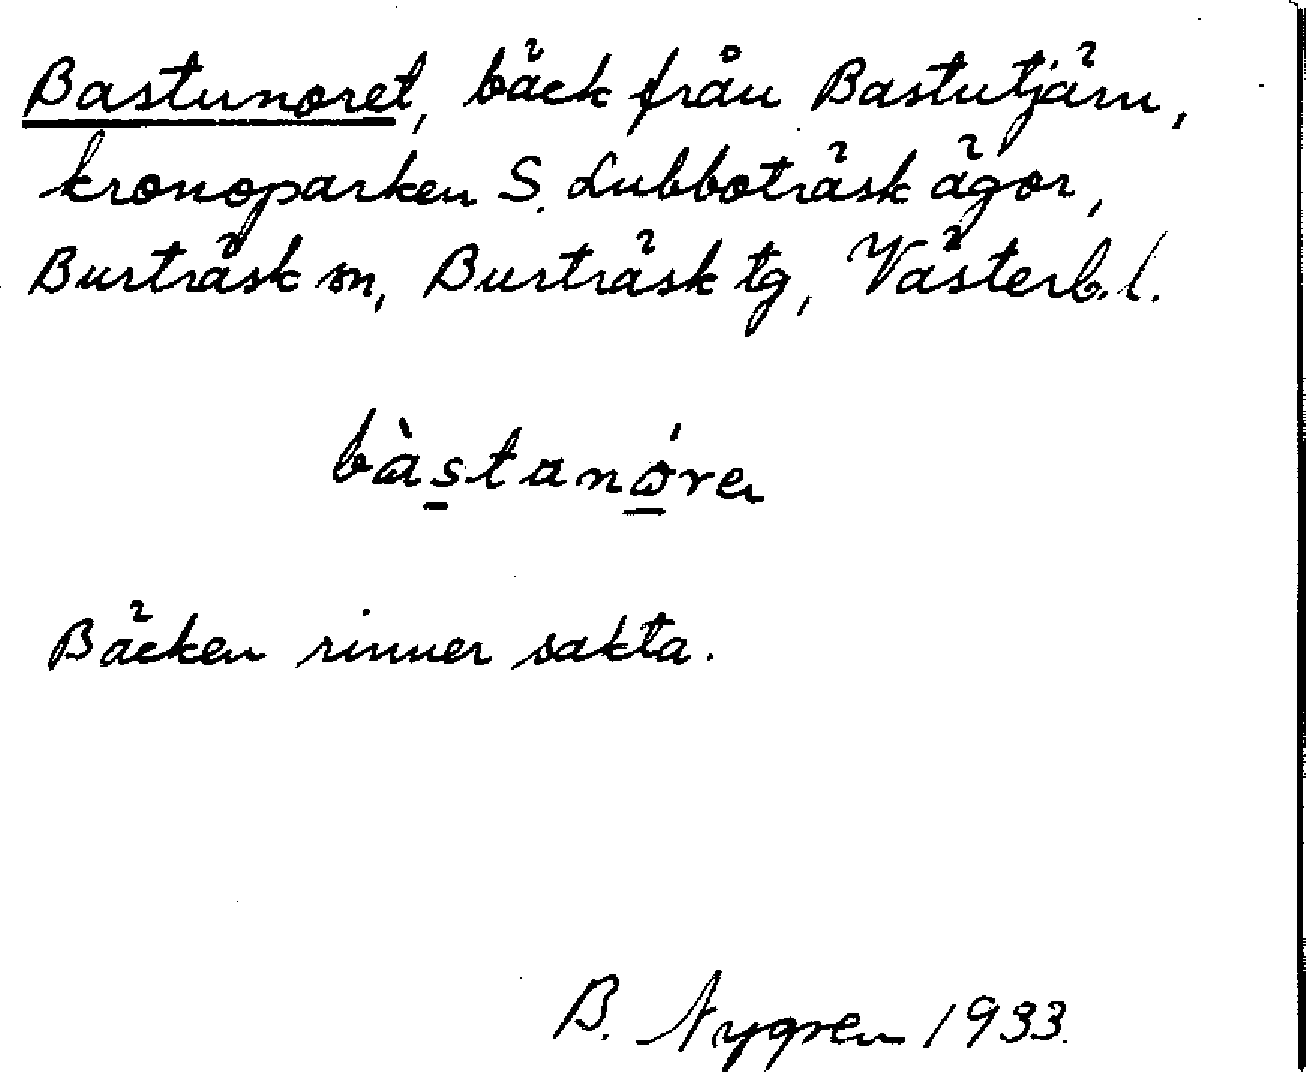 Bastunoret, bäck från Bastutjärn,
kronoparken S. Lubboträsk ägor,
Burträsk sn, Burträsk tg, Västerb. l.
bàstanóren
Bäcken rinner sakta.
B. Nygren 1933.